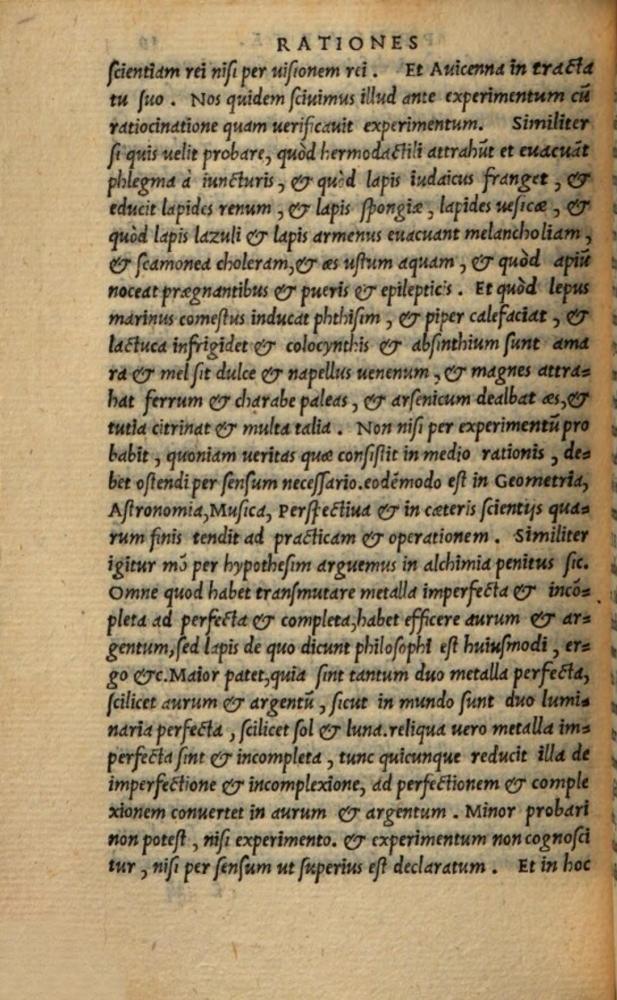 RATIONES
scientiam rei nisi per uisionem rei. Et Auicenna in tracta
tu suo. Nos quidem sciuimus illud ante experimentum cũ
ratiocinatione quam uerificauit experimentum. Similiter
si quis uelit probare, quòd hermodactili attrahũt et euacuãt
phlegma à iuncturis, & quòd lapis iudaicus franget, &
educit lapides renum, & lapis spongiæ, lapides uesicæ, &
quòd lapis lazuli & lapis armenus euacuant melancholiam,
& scamonea choleram, & æs ustum aquam, & quòd apiũ
noceat prægnantibus & pueris & epilepticis. Et quòd lepus
marinus comestus inducat phthisim, & piper calefaciat, &
lactuca infrigidet & colocynthis & absinthium sunt ama
ra & mel sit dulce & napellus uenenum, & magnes attra=
hat ferrum & charabe paleas, & arsenicum dealbat æs, &
tutia citrinat & multa talia. Non nisi per experimentũ pro
babit, quoniam ueritas quæ consistit in medio rationis, de=
bet ostendi per sensum necessario. eodẽmodo est in Geometria,
Astronomia, Musica, Perspectiua & in cæteris scientijs qua=
rum finis tendit ad practicam & operationem. Similiter
igitur mõ per hypothesim arguemus in alchimia penitus sic.
Omne quod habet transmutare metalla imperfecta & incõ=
pleta ad perfecta & completa, habet efficere aurum & ar=
gentum, sed lapis de quo dicunt philosophi est huiusmodi, er=
go &c. Maior patet, quia sint tantum duo metalla perfecta,
scilicet aurum & argentũ, sicut in mundo sunt duo lumi=
naria perfecta, scilicet sol & luna. reliqua uero metalla im=
perfecta sint & incompleta, tunc quicunque reducit illa de
imperfectione & incomplexione, ad perfectionem & comple
xionem conuertet in aurum & argentum. Minor probari
non potest, nisi experimento. & experimentum non cognosci
tur, nisi per sensum ut superius est declaratum. Et in hoc